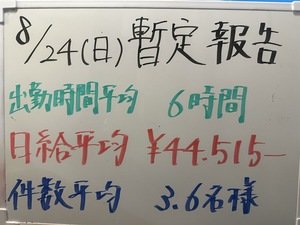 8/24(日)暫定報告
出勤時間平均 6時間
日給平均 ¥44.515-
件数平均 3.6名様